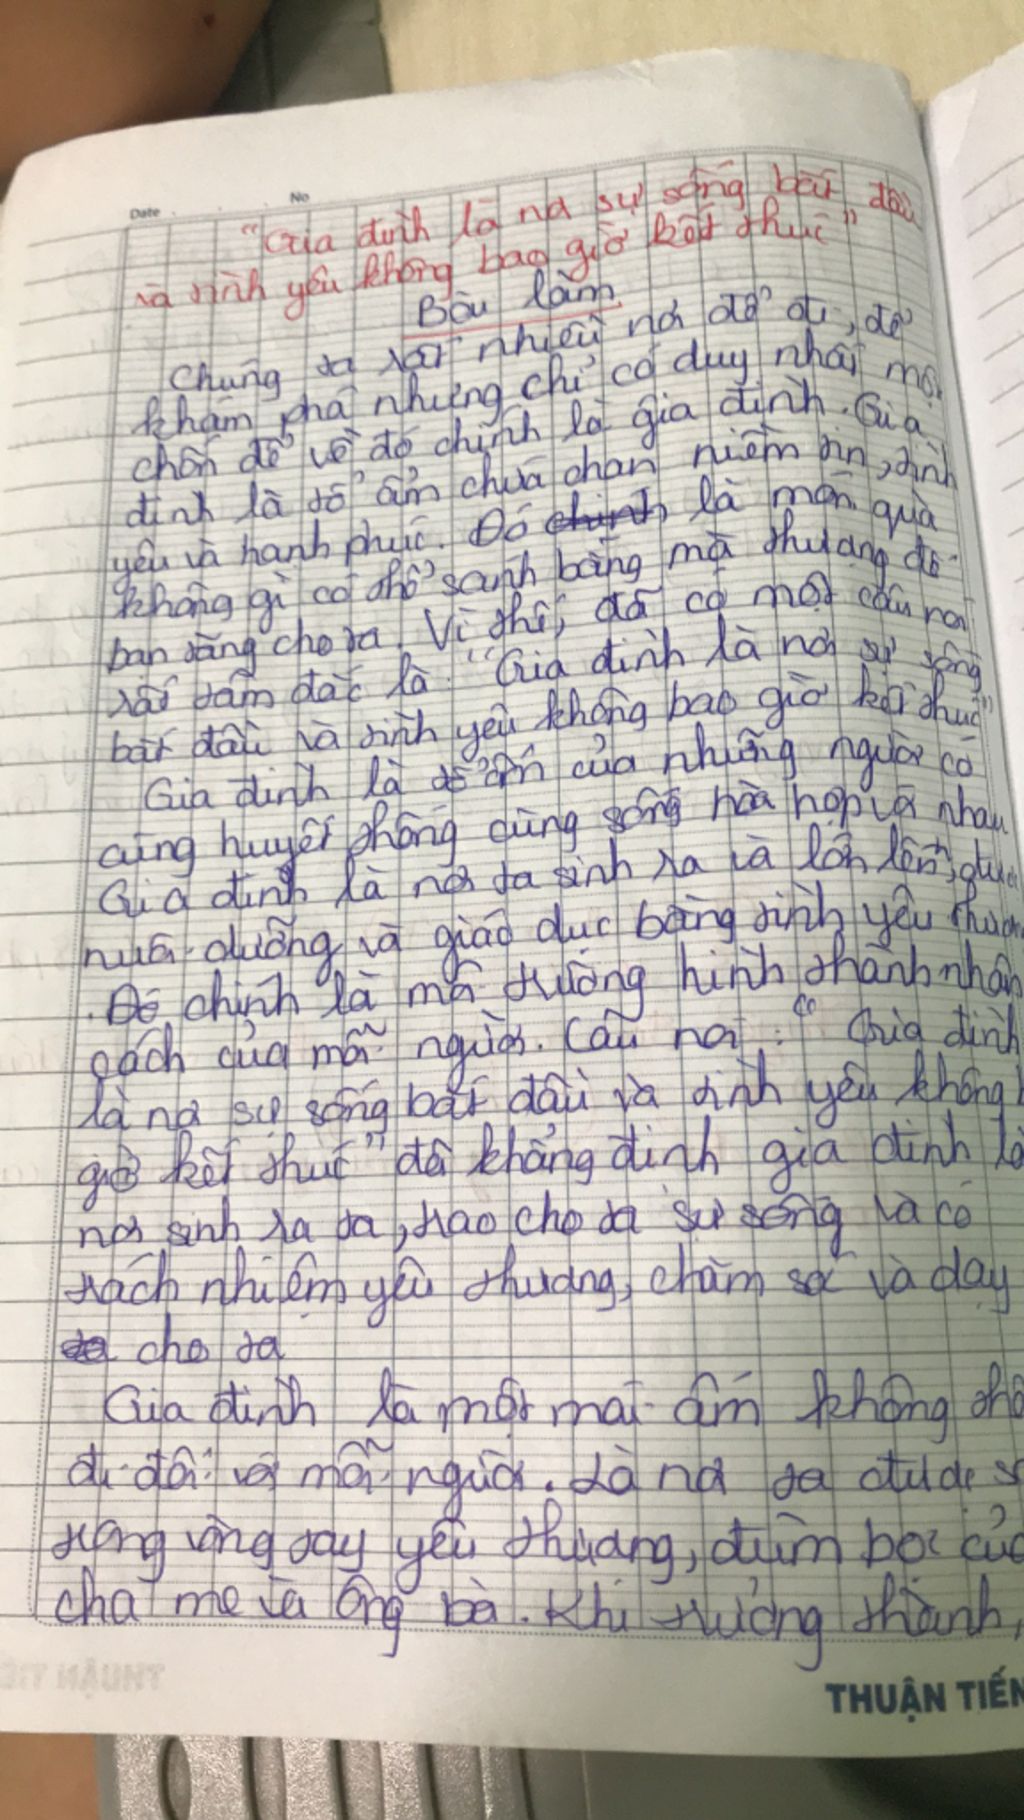 Date No
"Gia đình là nơi sự sống bắt đầu
và tình yêu không bao giờ kết thúc"
Bài làm
Chúng ta rất nhiều nơi để đi, để
khám phá nhưng chỉ có duy nhất một
chốn để về đó chính là gia đình. Gia
đình là tổ ấm chứa chan niềm tin, tình
yêu và hạnh phúc. Đó chính là món quà
không gì có thể sánh bằng mà thượng đế
ban tặng cho ta. Vì thế, đã có một câu nói
rất tâm đắc là "Gia đình là nơi sự sống
bắt đầu và tình yêu không bao giờ kết thúc"
Gia đình là tổ ấm của những người có
cùng huyết thống cùng sống hòa hợp với nhau
Gia đình là nơi ta sinh ra và lớn lên, được
nuôi dưỡng và giáo dục bằng tình yêu thương
. Đó chính là môi trường hình thành nhân
cách của mỗi người. Câu nói: "Gia đình
là nơi sự sống bắt đầu và tình yêu không
giờ kết thúc" đã khẳng định gia đình là
nơi sinh ra ta, trao cho ta sự sống và có
trách nhiệm yêu thương, chăm sóc và dạy
cho ta
Gia đình là một mái ấm không
đối với mỗi người. Là nơi ta được
trong vòng tay yêu thương, đùm bọc của
cha mẹ và ông bà. Khi trưởng thành,
THUẬN TIẾN